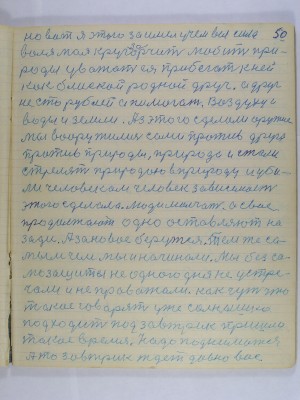 50
новат я этого зашилиучем вы сила
воля моя кругорчит любить при-
роды уважатся прибегать к ней
как близкой родной друг. а друг
не сто рублей а помогат. Воздуху и
воды и земли. Аз этого сделали оружие
мы вооружились сами против друга
против природы, природе и стали
стрелят природою в природу и уби-
ли человеком человек зависимост
этого сделала. Люди молчат. а свое
продолжают одно оставляют на
зади. А за новое берутся. Тем же са-
мым чем мы и начинали. Мы без са-
мозащиты не одного дня не устре-
чали и не провожали. как чут это
такое говарят уже солнышко
подходит под завтрик пришло
такое время. надо подниматся
А то завтрик ждет давно вас